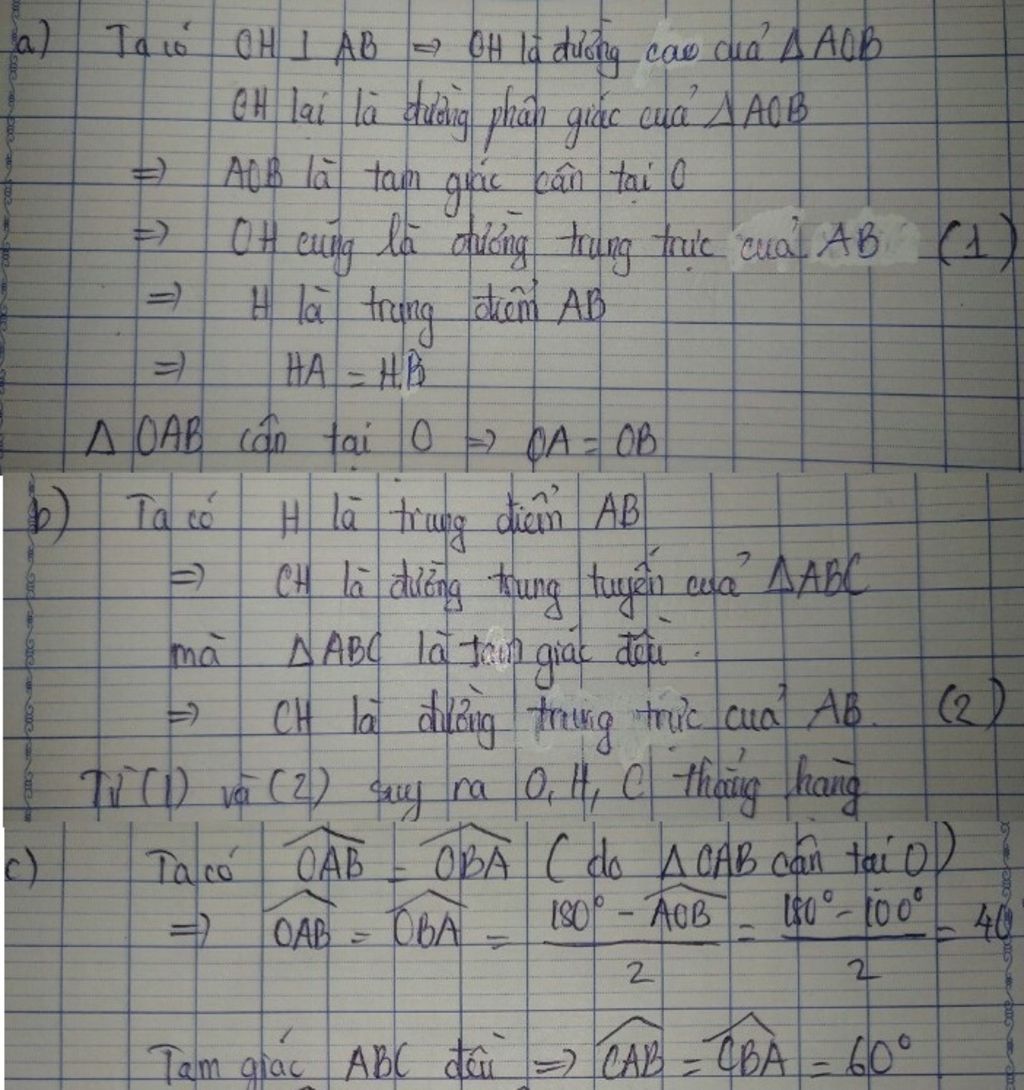 a) Ta có OH ⊥ AB => OH là đường cao của △AOB
OH lại là đường phân giác của △AOB
=> AOB là tam giác cân tại O
=> OH cũng là đường trung trực của AB (1)
=> H là trung điểm AB
=> HA = HB
△OAB cân tại O => OA = OB
b) Ta có H là trung điểm AB
=> CH là đường trung tuyến của △ABC
mà △ABC là tam giác đều.
=> CH là đường trung trực của AB. (2)
Từ (1) và (2) suy ra O, H, C thẳng hàng
c) Ta có \widehat{OAB} = \widehat{OBA} (do △OAB cân tại O)
=> \widehat{OAB} = \widehat{OBA} = \frac{180° - \widehat{AOB}}{2} = \frac{180° - 100°}{2} = 40°
Tam giác ABC đều => \widehat{CAB} = \widehat{CBA} = 60°